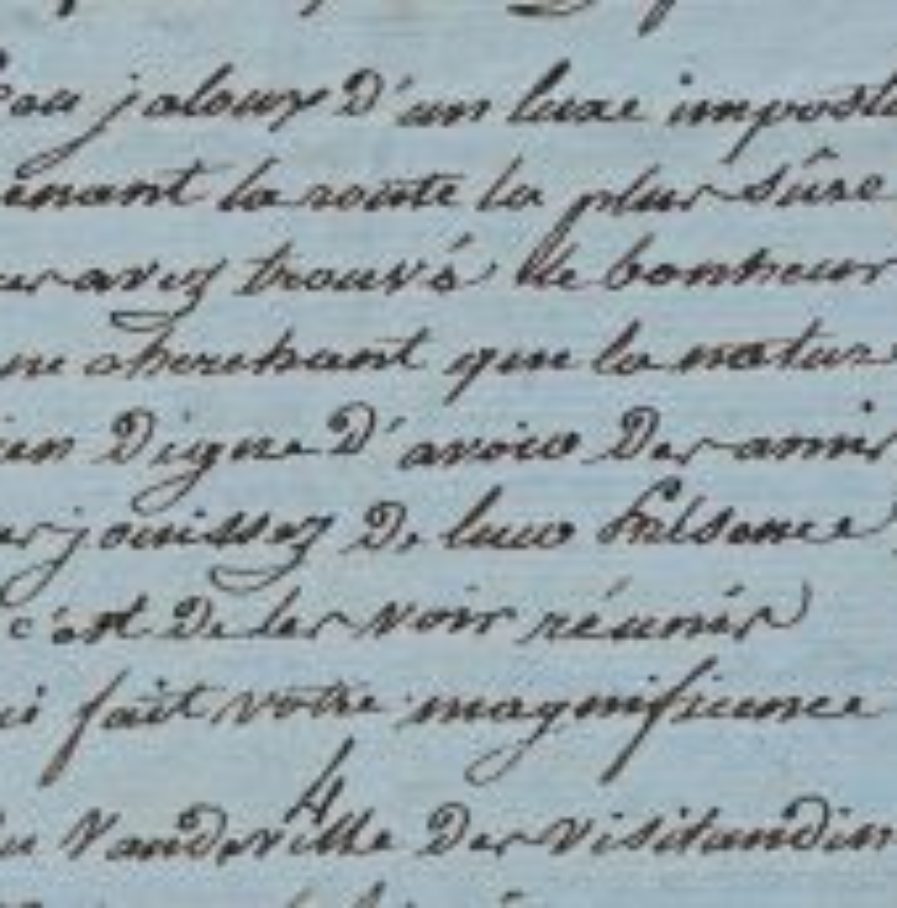 jaloux D'un luxe imposte
enant la route la plus sûre
avez trouvé le bonheur
ne cherchant que la nature
Digne D'avoir Des amis
jouissez De leur Présence
c'est De les voir réunis
fait votre magnificence
4
Vaudeville Des Visitandin